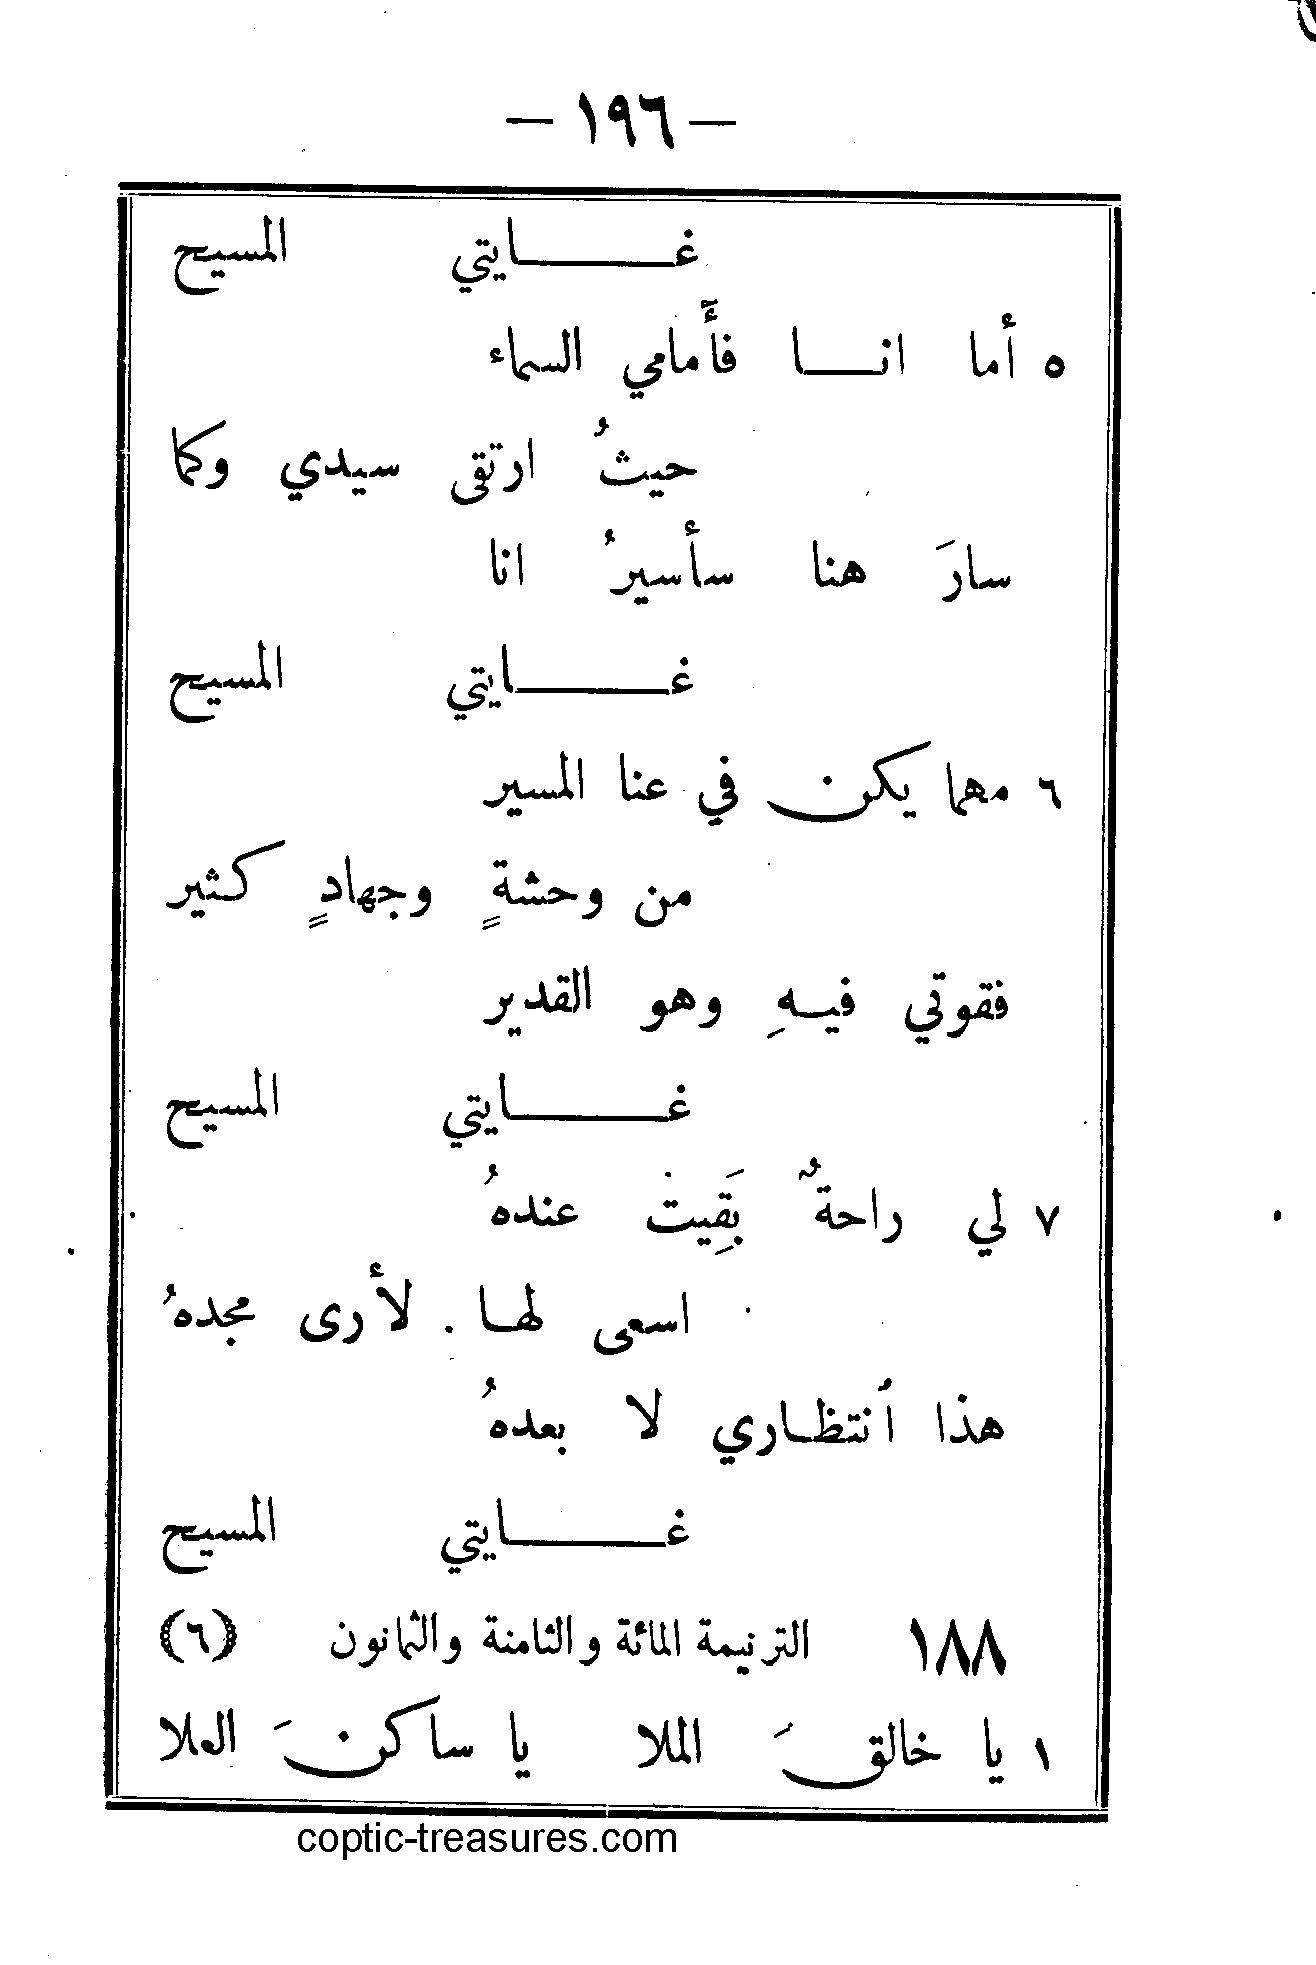 — ١٩٦ —
غـــايتي المسيح
٥ أما انـــا فأَمامي السماء
حيثُ ارتقى سيدي وكما
سارَ هنا سأسيرُ انا
غـــايتي المسيح
٦ مهما يكن في عنا المسير
من وحشةٍ وجهادٍ كثير
فقوتي فيـهِ وهو القدير
غـــايتي المسيح
٧ لي راحةٌ بَقِيت عندهُ
اسعى لهـا . لأرى مجدهُ
هذا اُنتظـاري لا بعدهُ
غـــايتي المسيح
١٨٨ الترنيمة المائة والثامنة والثمانون (٦)
١ يا خالقَ الملا يا ساكنَ العلا
coptic-treasures.com